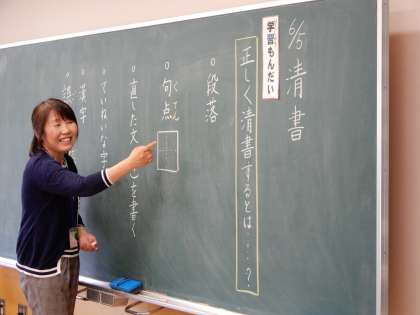 6/5 清書
学習もんだい
正しく清書するとは・・・?
○段落
○句点
くてん
○直した文
を書く
○ていねいな字
○漢字